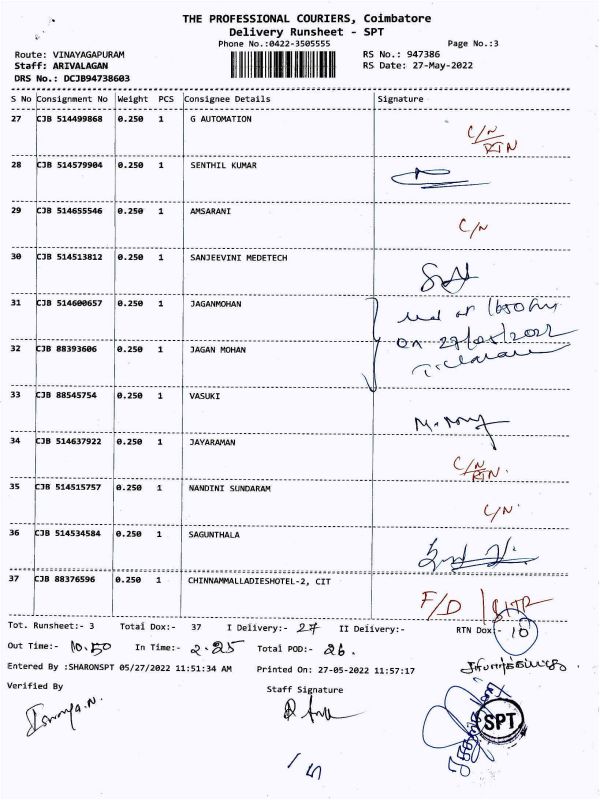 THE PROFESSIONAL COURIERS, Coimbatore
Delivery Runsheet - SPT
Phone No.:0422-3505555
Page No.:3
Route: VINAYAGAPURAM
RS No.: 947386
Staff: ARIVALAGAN
RS Date: 27-May-2022
DRS No.: DCJB94738603
S No Consignment No Weight PCS Consignee Details Signature
27 CJB 514499868 0.250 1 G AUTOMATION C/N RTN
28 CJB 514579904 0.250 1 SENTHIL KUMAR
29 CJB 514655546 0.250 1 AMSARANI C/N
30 CJB 514513812 0.250 1 SANJEEVINI MEDETECH
31 CJB 514600657 0.250 1 JAGANMOHAN
on 27/05/2022
32 CJB 88393606 0.250 1 JAGAN MOHAN
33 CJB 88545754 0.250 1 VASUKI
34 CJB 514637922 0.250 1 JAYARAMAN C/N RTN.
35 CJB 514515757 0.250 1 NANDINI SUNDARAM C/N.
36 CJB 514534584 0.250 1 SAGUNTHALA
37 CJB 88376596 0.250 1 CHINNAMMALLADIESHOTEL-2, CIT F/D
Tot. Runsheet:- 3 Total Dox:- 37 I Delivery:- 27 II Delivery:- RTN Dox:- 10
Out Time:- 10.50 In Time:- 2.25 Total POD:- 26.
Entered By :SHARONSPT 05/27/2022 11:51:34 AM Printed On: 27-05-2022 11:57:17
Verified By
Staff Signature
SPT